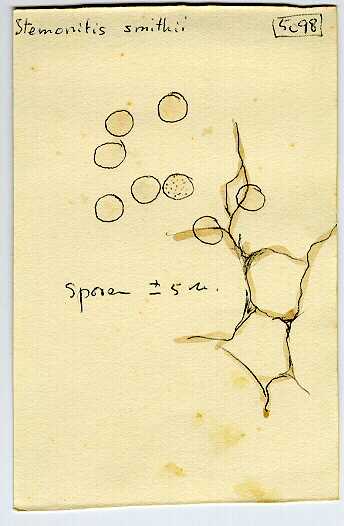 Stemonitis smithii
5098
Sporen ± 5 µ.